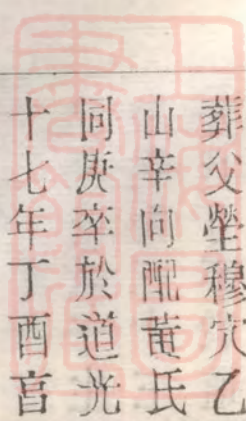 葬父塋穆穴乙
山辛向配黃氏
同庚卒於道光
十七年丁酉宮